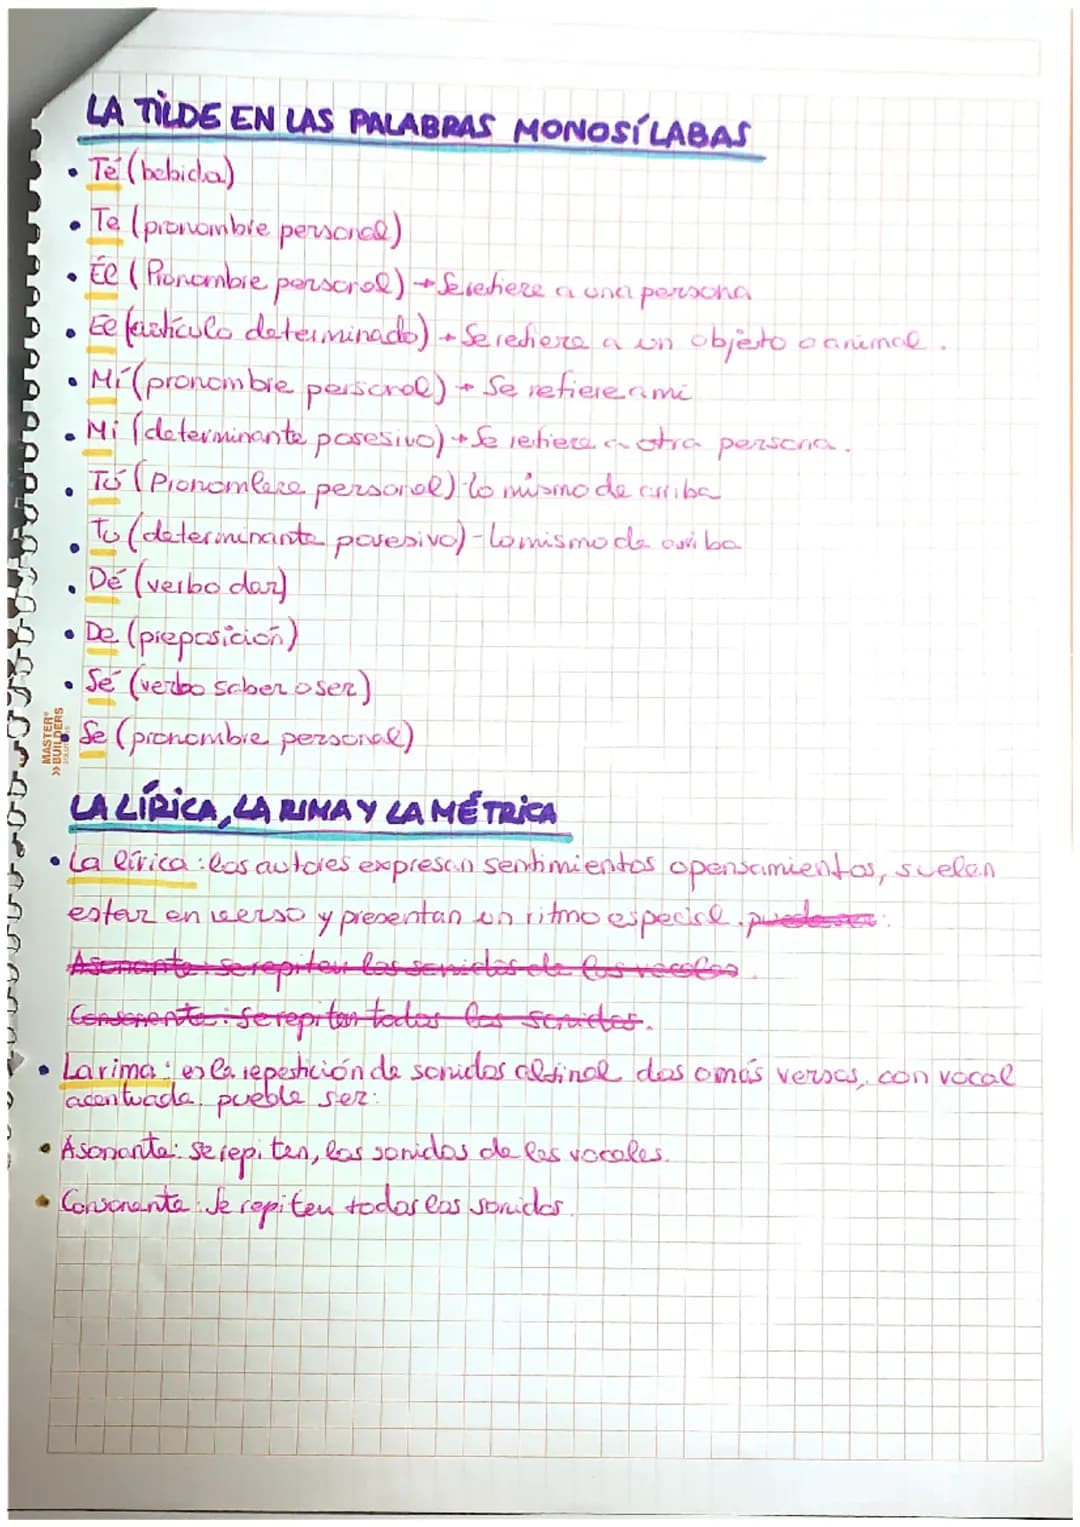 LA TILDE EN LAS PALABRAS MONOSÍLABAS
• Té (bebida)
• Te (pronombre personal)
• Él (Pronombre personal) → Se refiere a una persona
• El (artículo determinado) → Se refiere a un objeto o animal.
• Mí (pronombre personal) → Se refiere a mi
• Mi (determinante posesivo) → Se refiere a otra persona.
• Tú (Pronombre personal) - lo mismo de arriba
• Tu (determinante posesivo) - lo mismo de arriba
• Dé (verbo dar)
• De (preposición)
• Sé (verbo saber o ser)
• Se (pronombre personal)
MASTER®
»BUILDERS
SOLUTIONS
LA LÍRICA, LA RIMA Y LA MÉTRICA
• La lírica: los autores expresan sentimientos o pensamientos, suelen
estar en verso y presentan un ritmo especial. puede ser:
Asonante: se repiten los sonidos de las vocales
Consonante: Se repiten todos los sonidos.
• La rima: es la repetición de sonidos al final dos o más versos, con vocal
acentuada, pueble ser:
• Asonante: Se repiten, los sonidos de las vocales.
• Consonante: Se repiten todos los sonidos.